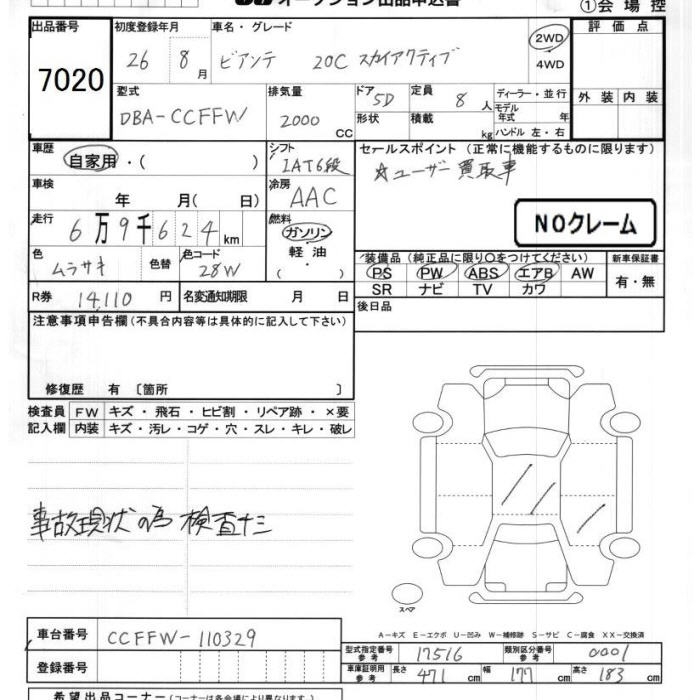 オークション出品申込書
①会場控
出品番号
7020
初度登録年月
26 8月
車名・グレード
ビアンテ 20C スカイアクティブ
2WD
4WD
評価点
外装 内装
型式
DBA-CCFFW
排気量
2000 CC
ドア 5D
形状
定員 8人
積載 kg
ディーラー・並行
モデル年式 年
ハンドル 左・右
車歴
自家用・( )
シフト
IAT6段
セールスポイント (正常に機能するものに限ります)
☆ユーザー買取車
車検
年 月( 日)
冷房
AAC
NOクレーム
走行
6万9千624km
燃料
ガソリン・
軽油・
( )
色
ムラサキ
色替
色コード
28W
装備品 (純正品に限り〇をつけてください)
PS PW ABS エアB AW
SR ナビ TV カワ
新車保証書
有・無
R券 14,110円
名変通知期限 月 日
後日品
注意事項申告欄(不具合内容等は具体的に記入して下さい)
修復歴 有 〔箇所 〕
検査員 FW キズ・飛石・ヒビ割・リペア跡・×要
記入欄 内装 キズ・汚レ・コゲ・穴・スレ・キレ・破レ
事故現状の為 検査ナシ
スペア
A-キズ E-エクボ U-凹み W-補修跡 S-サビ C-腐食 XX-交換済
車台番号 CCFFW-110329
登録番号
型式指定番号 参考 17516
類別区分番号 参考 0001
車庫証明用 参考 長さ 471cm 幅 177cm 高さ 183cm
希望出品コーナー(コーナーは各会場により異なります。)